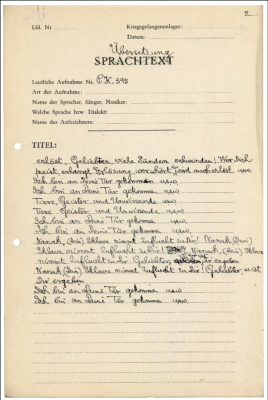 2
Lfd. Nr
Kriegsgefangenenlager:
Datum:
Übersetzung
SPRACHTEXT
Lautliche Aufnahme Nr. P.K. 595
Art der Aufnahme:
Name der Sprecher, Sänger, Musiker:
Welche Sprache bzw. Dialekt:
Name des Aufzeichners:
TITEL:
erlöst, Geliebter, viele Sünden Wer Dich
preist erlangt Erlösung usw.
Ich bin an Deine Tür gekommen usw.
Ich bin an Deine Tür gekomme usw.
Tiere, Geister und Unwissende usw.
Tiere Geister und Unwissende usw.
Ich bin an Deine Tür gekomme usw.
Ich bin an Deine Tür gekomme usw.
Nanak, (Dein) Sklave nimmt Zuflucht zu Dir! Nanak (Dein)
Sklave nimmt Zuflucht zu Dir! Nanak, (Dein) Sklave
nimmt Zuflucht zu Dir, Geliebter, Dir ergeben
Nanak, (Dein) Sklave nimmt Zuflucht zu Dir! Geliebter, er ist
Dir ergeben
Ich bin an Deine Tür gekomme usw.
Ich bin an Deine Tür gekomme usw.